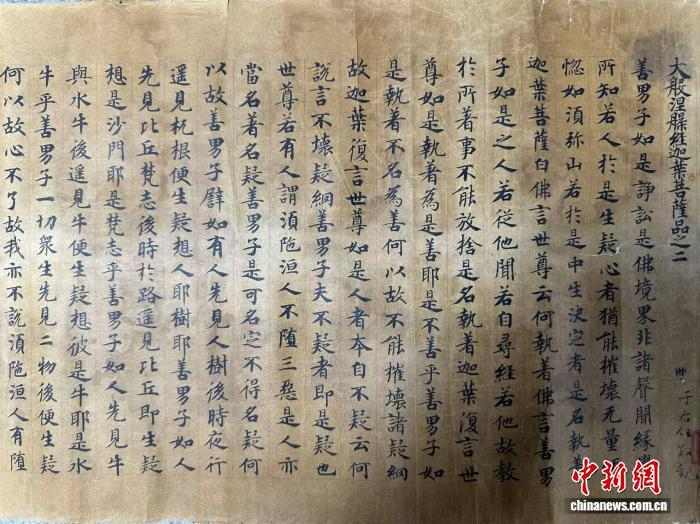 大般涅槃經迦葉菩薩品之二
卅
善男子如是諍訟是佛境界非諸聲聞緣覺
所知若人於是生疑心者猶能摧壞无量
惚如湏弥山若於是中生決定者是名執著
迦葉菩薩白佛言世尊云何執著佛言善男
子如是之人若從他聞若自尋經若他故教
於所著事不能放捨是名執著迦葉復言世
尊如是執著為是善耶是不善乎善男子如
是執著不名為善何以故不能摧壞諸疑網
故迦葉復言世尊如是人者本自不疑云何
說言不壞疑網善男子夫不疑者即是疑也
世尊若有人謂湏陁洹人不墮三惡是人亦
當名著名疑善男子是可名定不得名疑何
以故善男子譬如有人先見人樹後時夜行
遥見杌根便生疑想人耶樹耶善男子如人
先見比丘梵志後時於路遥見比丘即生疑
想是沙門耶是梵志乎善男子如人先見牛
與水牛後遥見牛便生疑想彼是牛耶是水
牛乎善男子一切衆生先見二物後便生疑
何以故心不了故我亦不說湏陁洹人有墮
中新网
chinanews.com